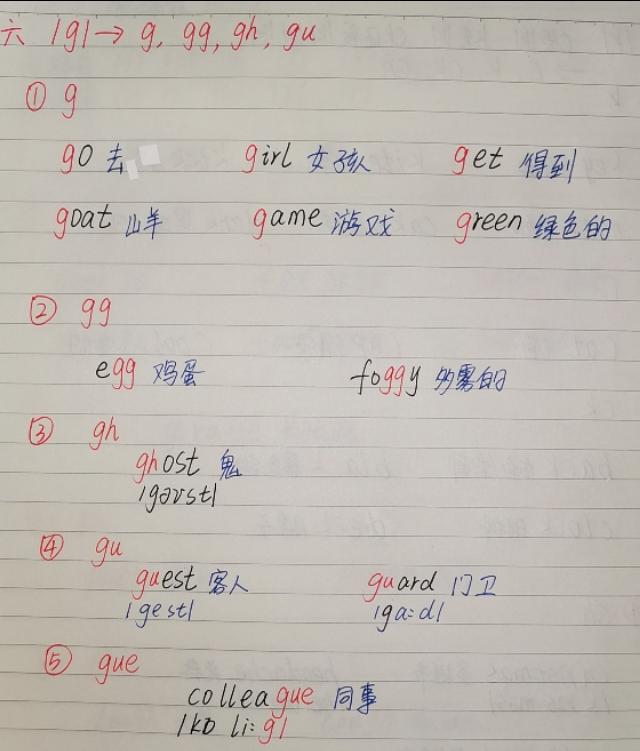 六 /g/→ g, gg, gh, gu
① g
go 去 girl 女孩 get 得到
goat 山羊 game 游戏 green 绿色的
② gg
egg 鸡蛋 foggy 多雾的
③ gh
ghost 鬼
/gəʊst/
④ gu
guest 客人 guard 门卫
/gest/ /ga:d/
⑤ gue
colleague 同事
/kɒ li:g/